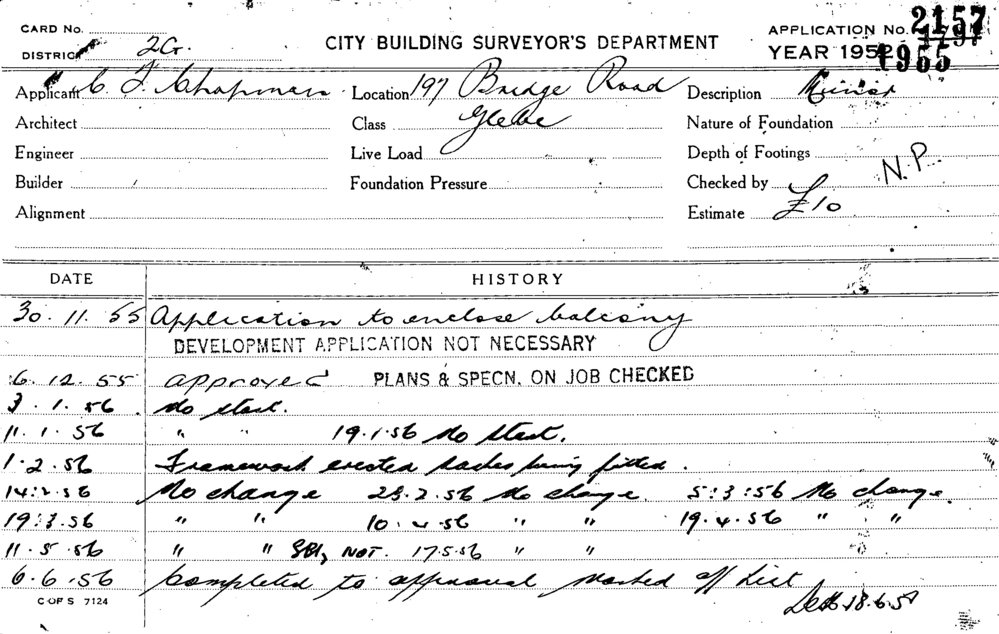 CARD No.
DISTRICT 2G.
CITY BUILDING SURVEYOR'S DEPARTMENT
APPLICATION No. 2157
YEAR 1952 1955
Applicant C. J. Chapman Location 197 Bridge Road Description Minor
Architect Class Glebe Nature of Foundation
Engineer Live Load Depth of Footings
Builder Foundation Pressure Checked by N.P.
Alignment Estimate £10
DATE HISTORY
30.11.55 Application to enclose balcony
DEVELOPMENT APPLICATION NOT NECESSARY
6.12.55 approved PLANS & SPECN. ON JOB CHECKED
3.1.56 No start.
11.1.56 " " 19.1.56 No start.
1.2.56 Framework erected sashes being fitted.
14.2.56 No change 28.2.56 No change. 5:3:56 No change.
19.3.56 " " 10.4.56 " " 19.4.56 " "
11.5.56 " " NOT. 17.5.56 " "
6.6.56 Completed to approval marked off List
C OF S 7124